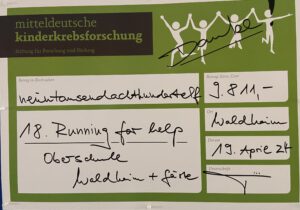 mitteldeutsche
kinderkrebsforschung
Stiftung für Forschung und Heilung
Danke!
Betrag in Buchstaben
neuntausendachthundertelf
Betrag Euro, Cent
9.811,-
18. Running for help
Oberschule
Waldheim + Gäste
Ort
Waldheim
Datum
19. April 24
Unterschrift